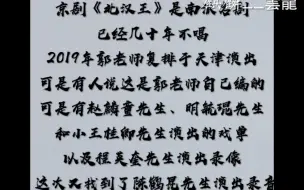 京剧《北汉王》是南派名剧
已经几十年不唱
2019年郭老师复排于天津演出
可是有人说这是郭老师自己编的
可是有赵麟童先生、明毓琨先生
和小王桂卿先生演出的戏单
以及程英奎先生演出录像
这次又找到了陈鹤昆先生演出录音